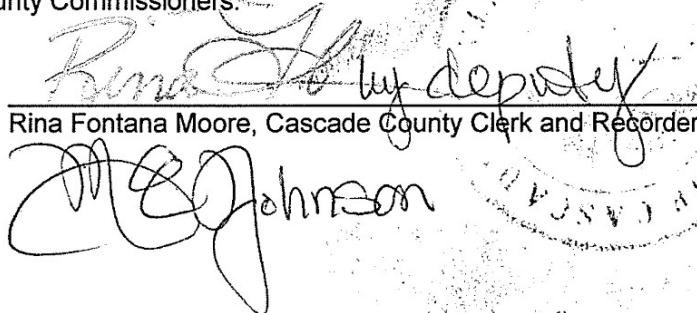 unty Commissioners.
Rina by deputy
Rina Fontana Moore, Cascade County Clerk and Recorder
ME Johnson
CASCAD